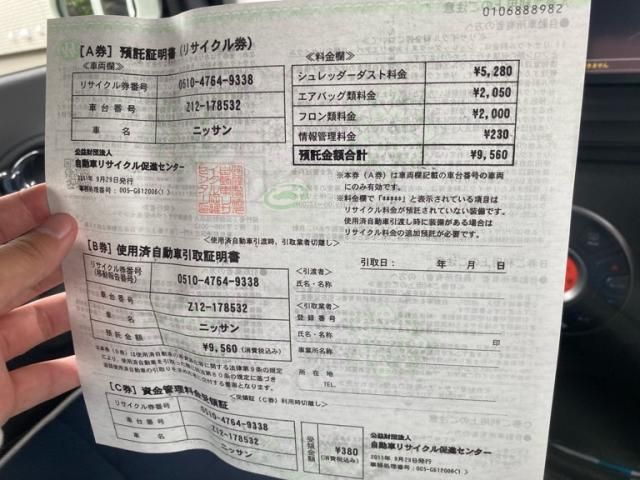 0106888982
[A券] 預託証明書(リサイクル券)
<車両欄>
リサイクル券番号 0510-4764-9338
車台番号 Z12-178532
車名 ニッサン
<料金欄>
シュレッダーダスト料金 ¥5,280
エアバッグ類料金 ¥2,050
フロン類料金 ¥2,000
情報管理料金 ¥230
預託金額合計 ¥9,560
公益財団法人
自動車リサイクル促進センター
2011年 9月29日発行
事務処理番号：005-G612006(1)
※本券（A券）は車両欄記載の車台番号の車両
にのみ有効です。
※料金欄で「*****」と表示されている項目は
リサイクル料金が預託されていない装備です。
使用済自動車引渡し時に装備がある場合は
リサイクル料金の追加預託が必要です。
<使用済自動車引渡時、引取業者切離し>
[B券] 使用済自動車引取証明書
リサイクル券番号
(移動報告番号) 0510-4764-9338
車台番号 Z12-178532
車名 ニッサン
預託金額 ¥9,560 (消費税込み)
引取日： 年 月 日
<引渡者>
氏名・名称
<引取業者>
登録番号
氏名・名称 印
事業所名称
所在地
TEL.
<受領証（C券）利用時切離し>
[C券] 資金管理料金受領証
リサイクル券番号 0510-4764-9338
車台番号 Z12-178532
車名 ニッサン
受領金額 ¥380
(消費税込み)
公益財団法人
自動車リサイクル促進センター
2011年 9月29日発行
事務処理番号：005-G612006(1)